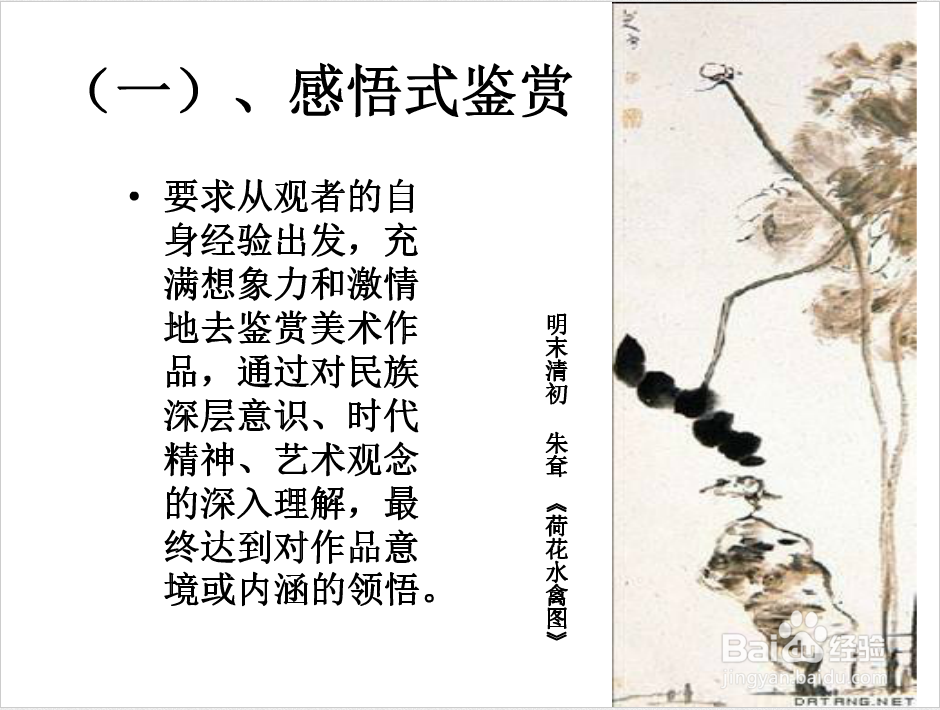 （一）、感悟式鉴赏
• 要求从观者的自
身经验出发，充
满想象力和激情
地去鉴赏美术作
品，通过对民族
深层意识、时代
精神、艺术观念
的深入理解，最
终达到对作品意
境或内涵的领悟。
明末清初 朱耷 《荷花水禽图》
Baidu 经验
jingyan.baidu.com
DATANG.NET